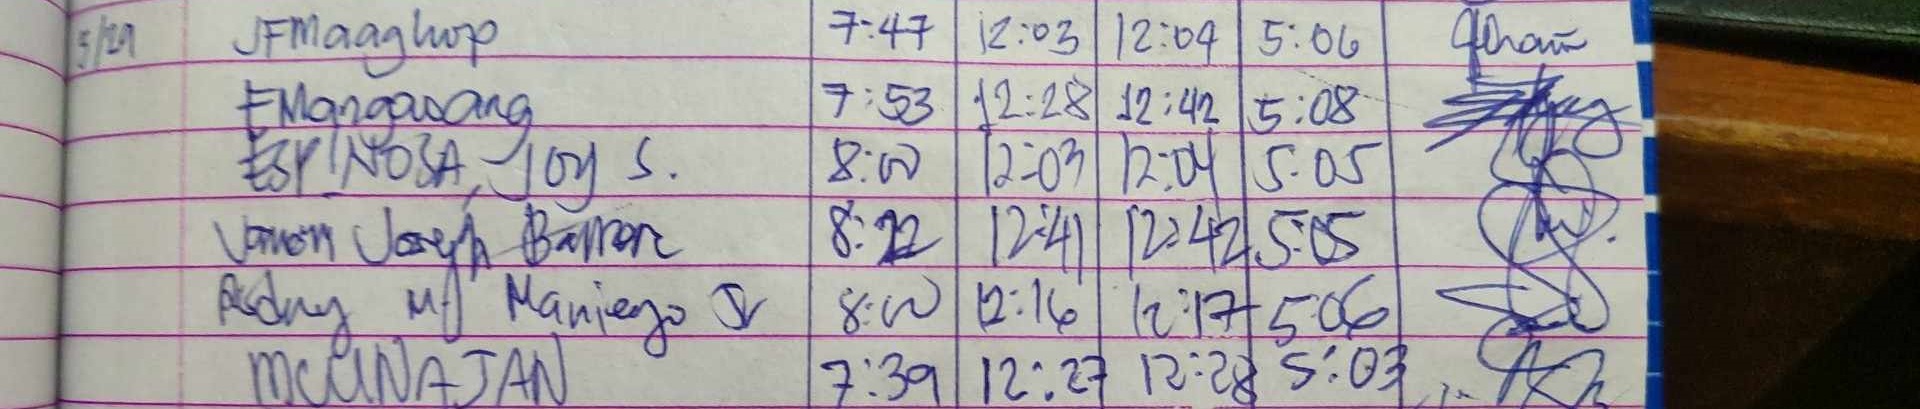 5/29 JFMaaghop 7:47 12:03 12:04 5:06
FMangawang 7:53 12:28 12:42 5:08
ESPINOSA, Joy S. 8:00 12:03 12:04 5:05
Joseph 8:22 12:41 12:42 5:05
Maniego Jr 8:00 12:16 12:17 5:06
7:39 12:27 12:28 5:03